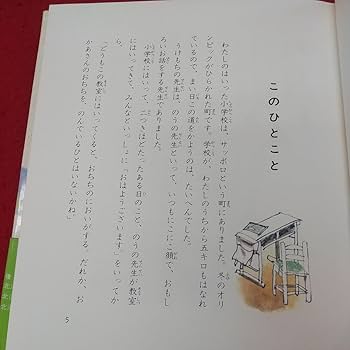 このひとこと
わたしのはいった小学校は、サッポロという町にありました。冬のオリ
ンピックがひらかれた町です。学校が、わたしのうちから五キロもはなれ
ているので、まい日この道をかようのは、たいへんでした。
うけもちの先生は、のうの先生といって、いつもにこにこ顔で、おもし
ろいお話をする先生でありました。
小学校にはいって、二つきほどたったある日のこと、のうの先生が教室
にはいってきて、みんなといっしょに「おはようございます」をいってか
ら、
「どうもこの教室にはいってくると、おちちのにおいがする。だれか、お
かあさんのおちちを、のんでいるひとはいないかね」
5